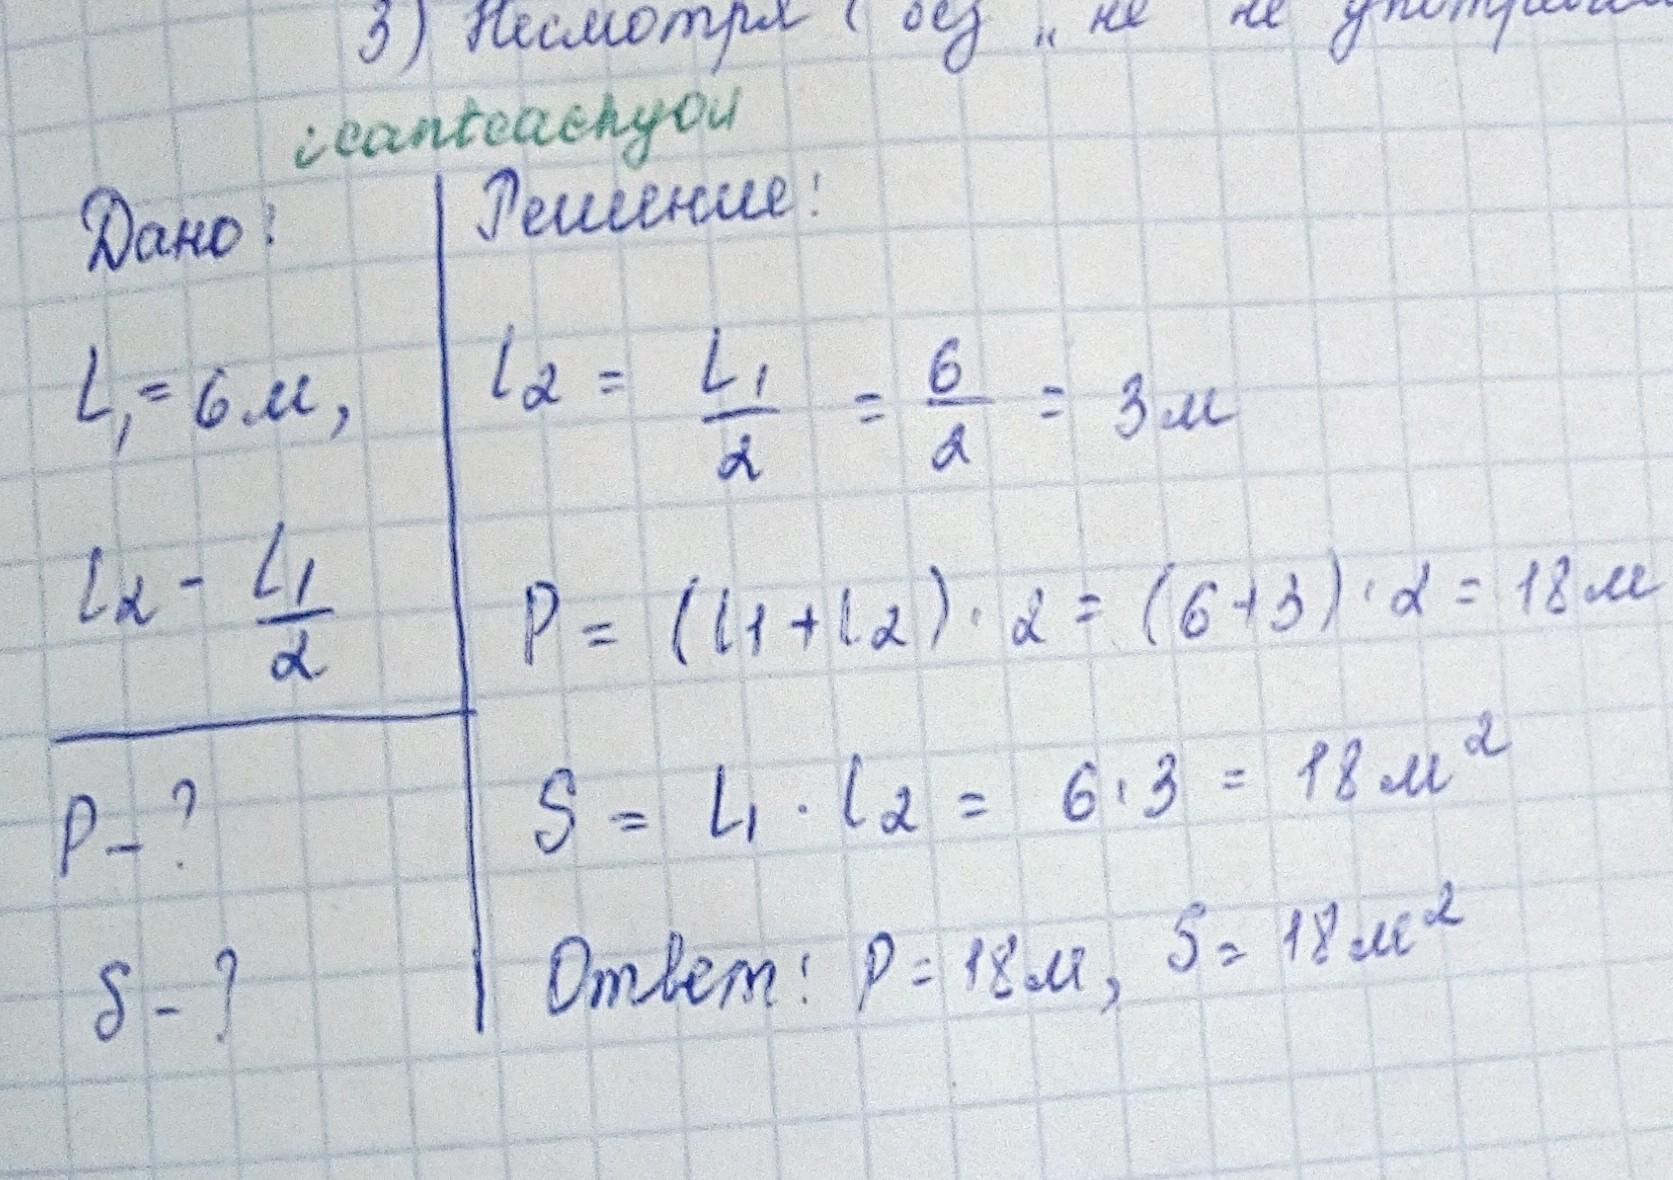 3) Несмотря ( без „ не не
icanteachyou
Дано:
L₁ = 6 м,
l₂ - L₁/2
P - ?
S - ?
Решение:
l₂ = L₁/2 = 6/2 = 3 м
P = (l₁ + l₂) · 2 = (6 + 3) · 2 = 18 м
S = L₁ · l₂ = 6 · 3 = 18 м²
Ответ: P = 18 м, S = 18 м²